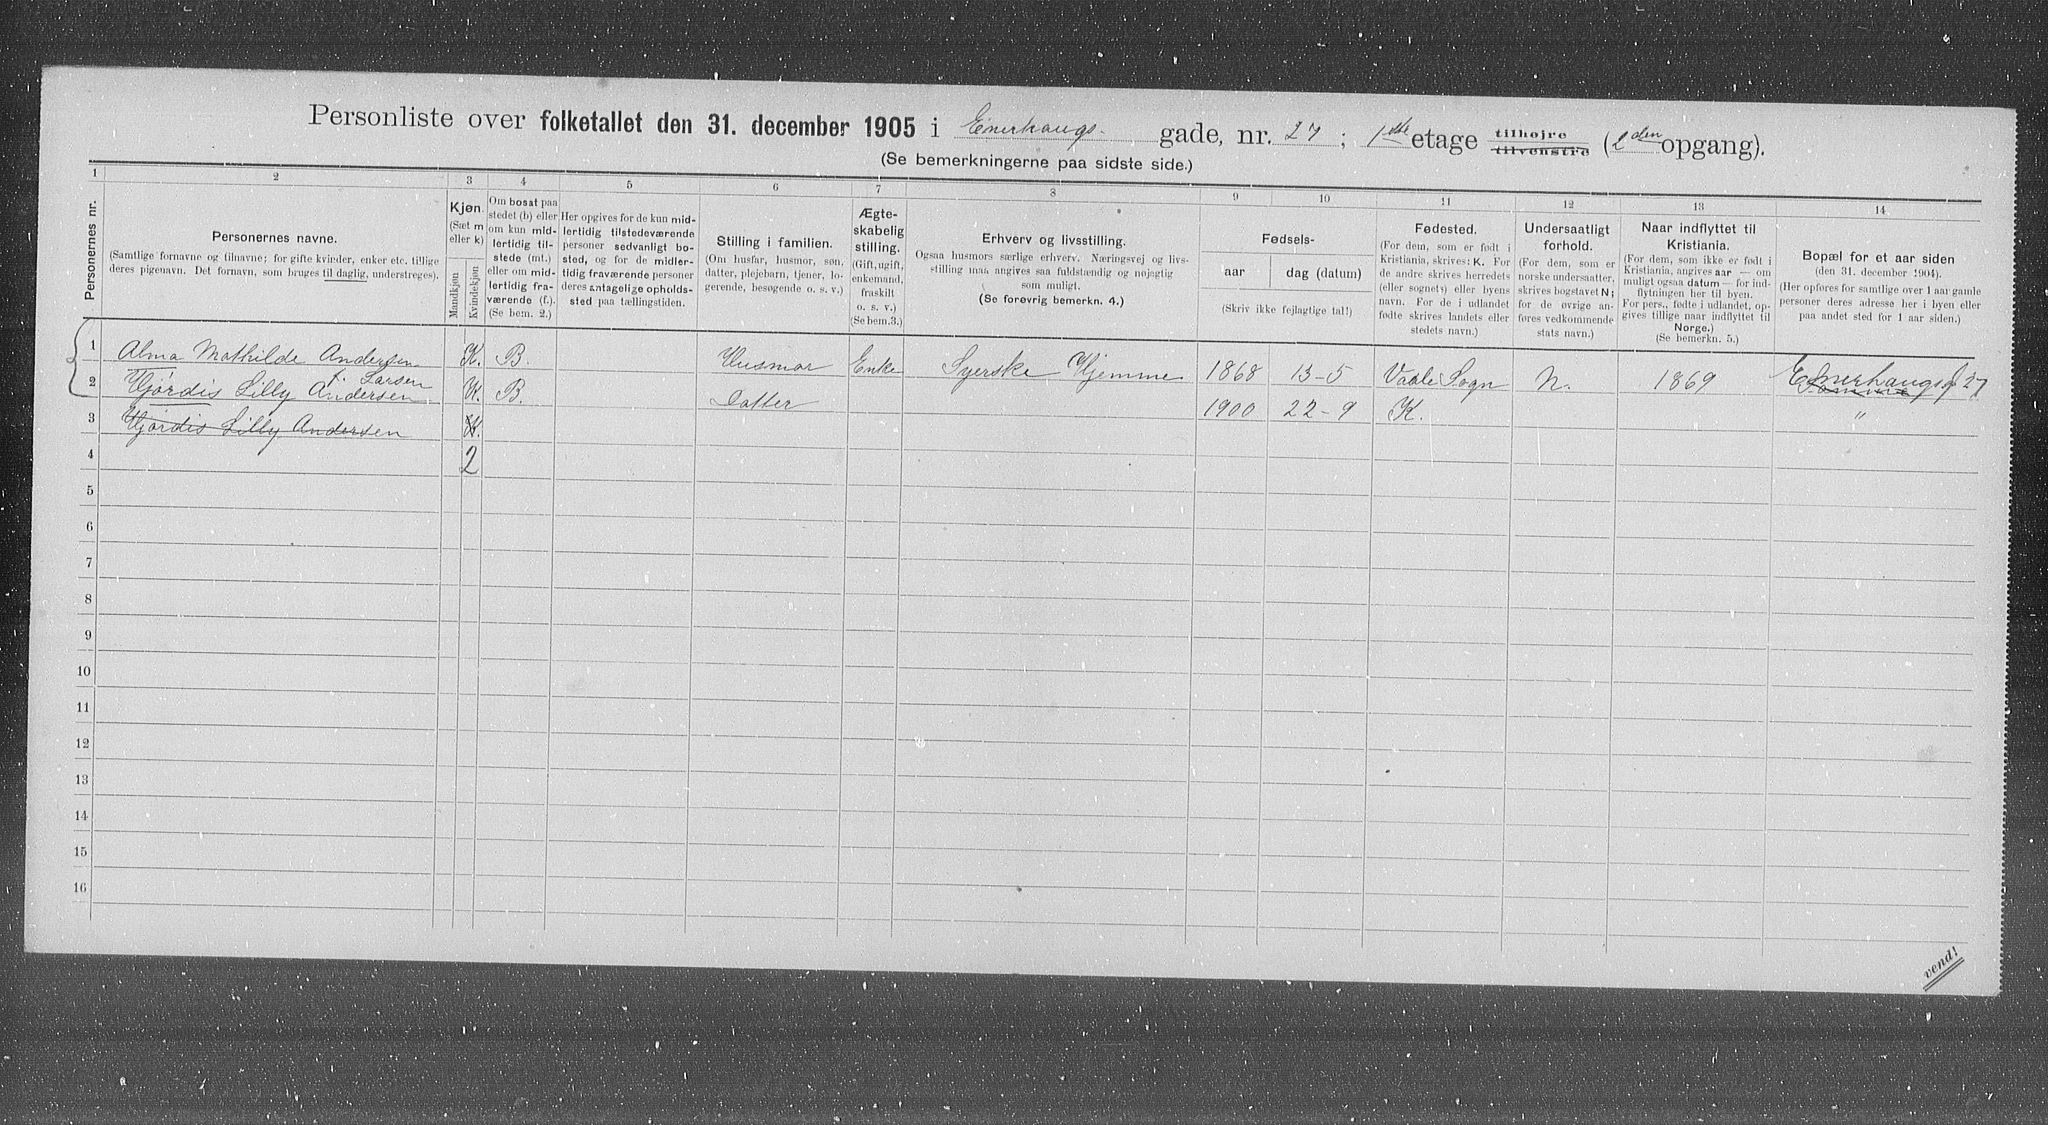 Personliste over folketallet den 31. december 1905 i Enerhaugs- gade, nr. 27; 1ste etage tilhøjre tilvenstre (2den opgang).
(Se bemerkningerne paa sidste side.)
1 2 3 4 5 6 7 8 9 10 11 12 13 14
Personernes nr.
Personernes navne.
(Samtlige fornavne og tilnavne; for gifte kvinder, enker etc. tillige
deres pigenavn. Det fornavn, som bruges til daglig, understreges).
Kjøn.
(Sæt m
eller k)
Mandkjøn
Kvindekjøn
Om bosat paa
stedet (b) eller
om kun mid-
lertidig til-
stede (mt.)
eller om mid-
lertidig fra-
værende (f.).
(Se bem. 2.)
Her opgives for de kun mid-
lertidig tilstedeværende
personer sedvanlig bo-
sted, og for de midler-
tidig fraværende personer
deres antagelige opholds-
sted paa tællingstiden.
Stilling i familien.
(Om husfar, husmor, søn,
datter, plejebarn, tjener, lo-
gerende, besøgende o. s. v.)
Ægte-
skabelig
stilling.
(Gift, ugift,
enkemand,
fraskilt
o. s. v.)
(Se bem. 3.)
Erhverv og livsstilling.
Ogsaa husmors særlige erhverv. Næringsvej og livs-
stilling maa angives saa fuldstændig og nøjagtig
som muligt.
(Se forøvrig bemerkn. 4.)
Fødsels-
aar
dag (datum)
(Skriv ikke fejlagtige tal!)
Fødested.
(For dem, som er født i
Kristiania, skrives: K. For
de andre skrives herredets
(eller sognets) eller byens
navn. For de i udlandet
fødte skrives landets eller
stedets navn.)
Undersaatligt
forhold.
(For dem, som er
norske undersaatter,
skrives bogstavet N;
for de øvrige an-
føres vedkommende
stats navn.)
Naar indflyttet til
Kristiania.
(For dem, som ikke er født i
Kristiania, angives aar — om
muligt ogsaa datum — for ind-
flytningen her til byen.
For pers., fødte i udlandet, op-
gives tillige naar indflyttet til
Norge.)
(Se bemerkn. 5.)
Bopæl for et aar siden
(den 31. december 1904).
(Her opføres for samtlige over 1 aar gamle
personer deres adresse her i byen eller
paa andet sted for 1 aar siden.)
1 Alma Mathilde Andersen K. B. Husmor Enke Syerske Hjemme 1868 13-5 Vaale Sogn N. 1869 Enerhaugsg 27
f. Larsen
2 Hjördis Lilly Andersen K. B. Datter 1900 22-9 K. "
3 Hjördis Lilly Andersen K.
4 2
5
6
7
8
9
10
11
12
13
14
15
16
vend!